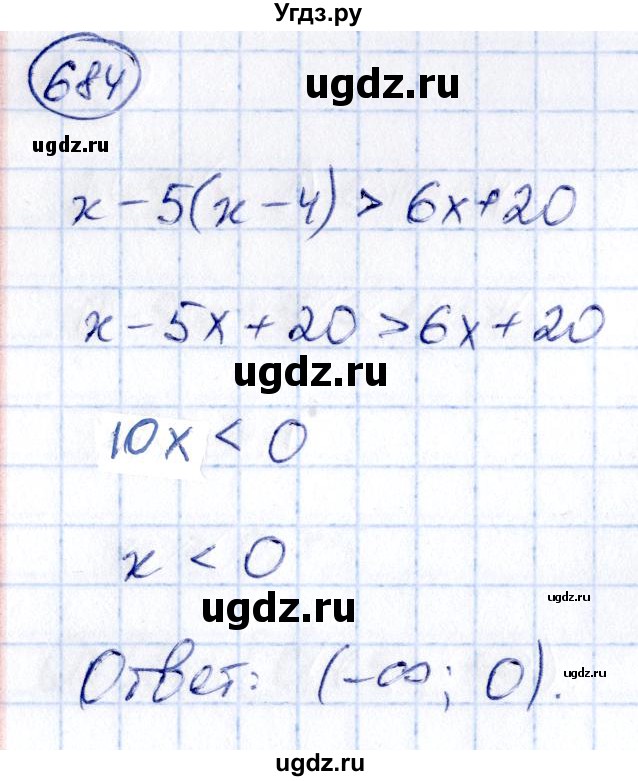 Угдз.ру
684
ugdz.ru
ugdz.ru
x - 5(x - 4) > 6x + 20
x - 5x + 20 > 6x + 20
ugdz.ru
10x < 0
x < 0
ugdz.ru
ugdz.ru
Ответ: (-∞; 0).
ugdz.ru
ugdz.ru
Угдз.ру